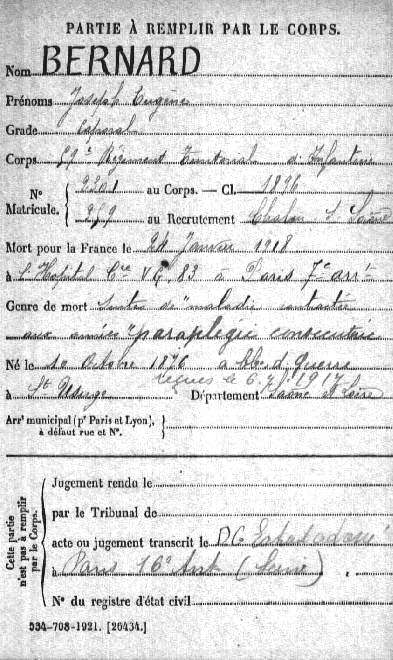 PARTIE À REMPLIR PAR LE CORPS.
Nom BERNARD
Prénoms Joseph Eugène
Grade Caporal
Corps 59e Régiment Territorial d'Infanterie
N° Matricule. au Corps. — Cl. 1896
au Recrutement Chalon s/ Saône
Mort pour la France le 24 Janvier 1918
à l'Hopital Cre VG 83 à Paris 7e arrt
Genre de mort Suites de "maladie contractée
aux armées" paraplégie consécutive
Né le 10 Octobre 1876 à bles. d Guerre
reçues le 1917
à St Usuge Département Saône et Loire
Arrt municipal (pr Paris et Lyon), à défaut rue et N°.
Cette partie n'est pas à remplir par le Corps.
Jugement rendu le
par le Tribunal de
acte ou jugement transcrit le D.C.
à Paris 16e Arrt (Seine)
N° du registre d'état civil
534-708-1921. [26434.]